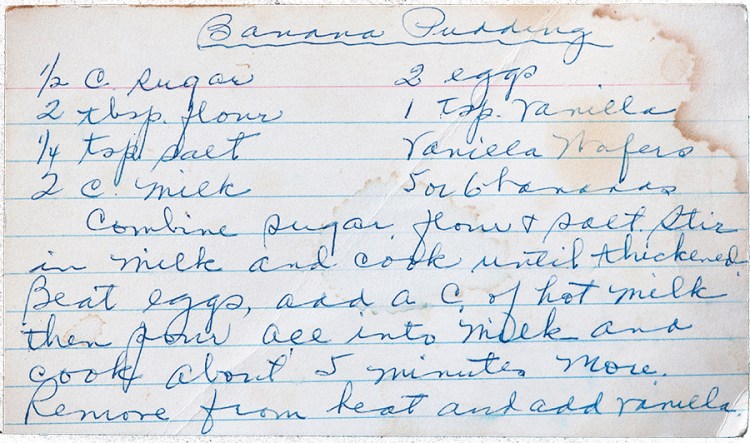 Banana Pudding
1/2 C. sugar 2 eggs
2 tbsp. flour 1 tsp. Vanilla
1/4 tsp. salt Vanilla Wafers
2 C. milk 5 or 6 bananas
Combine sugar, flour & salt. Stir
in milk and cook until thickened
Beat eggs, add a C. of hot milk
then pour all into milk and
cook about 5 minutes more.
Remove from heat and add vanilla.